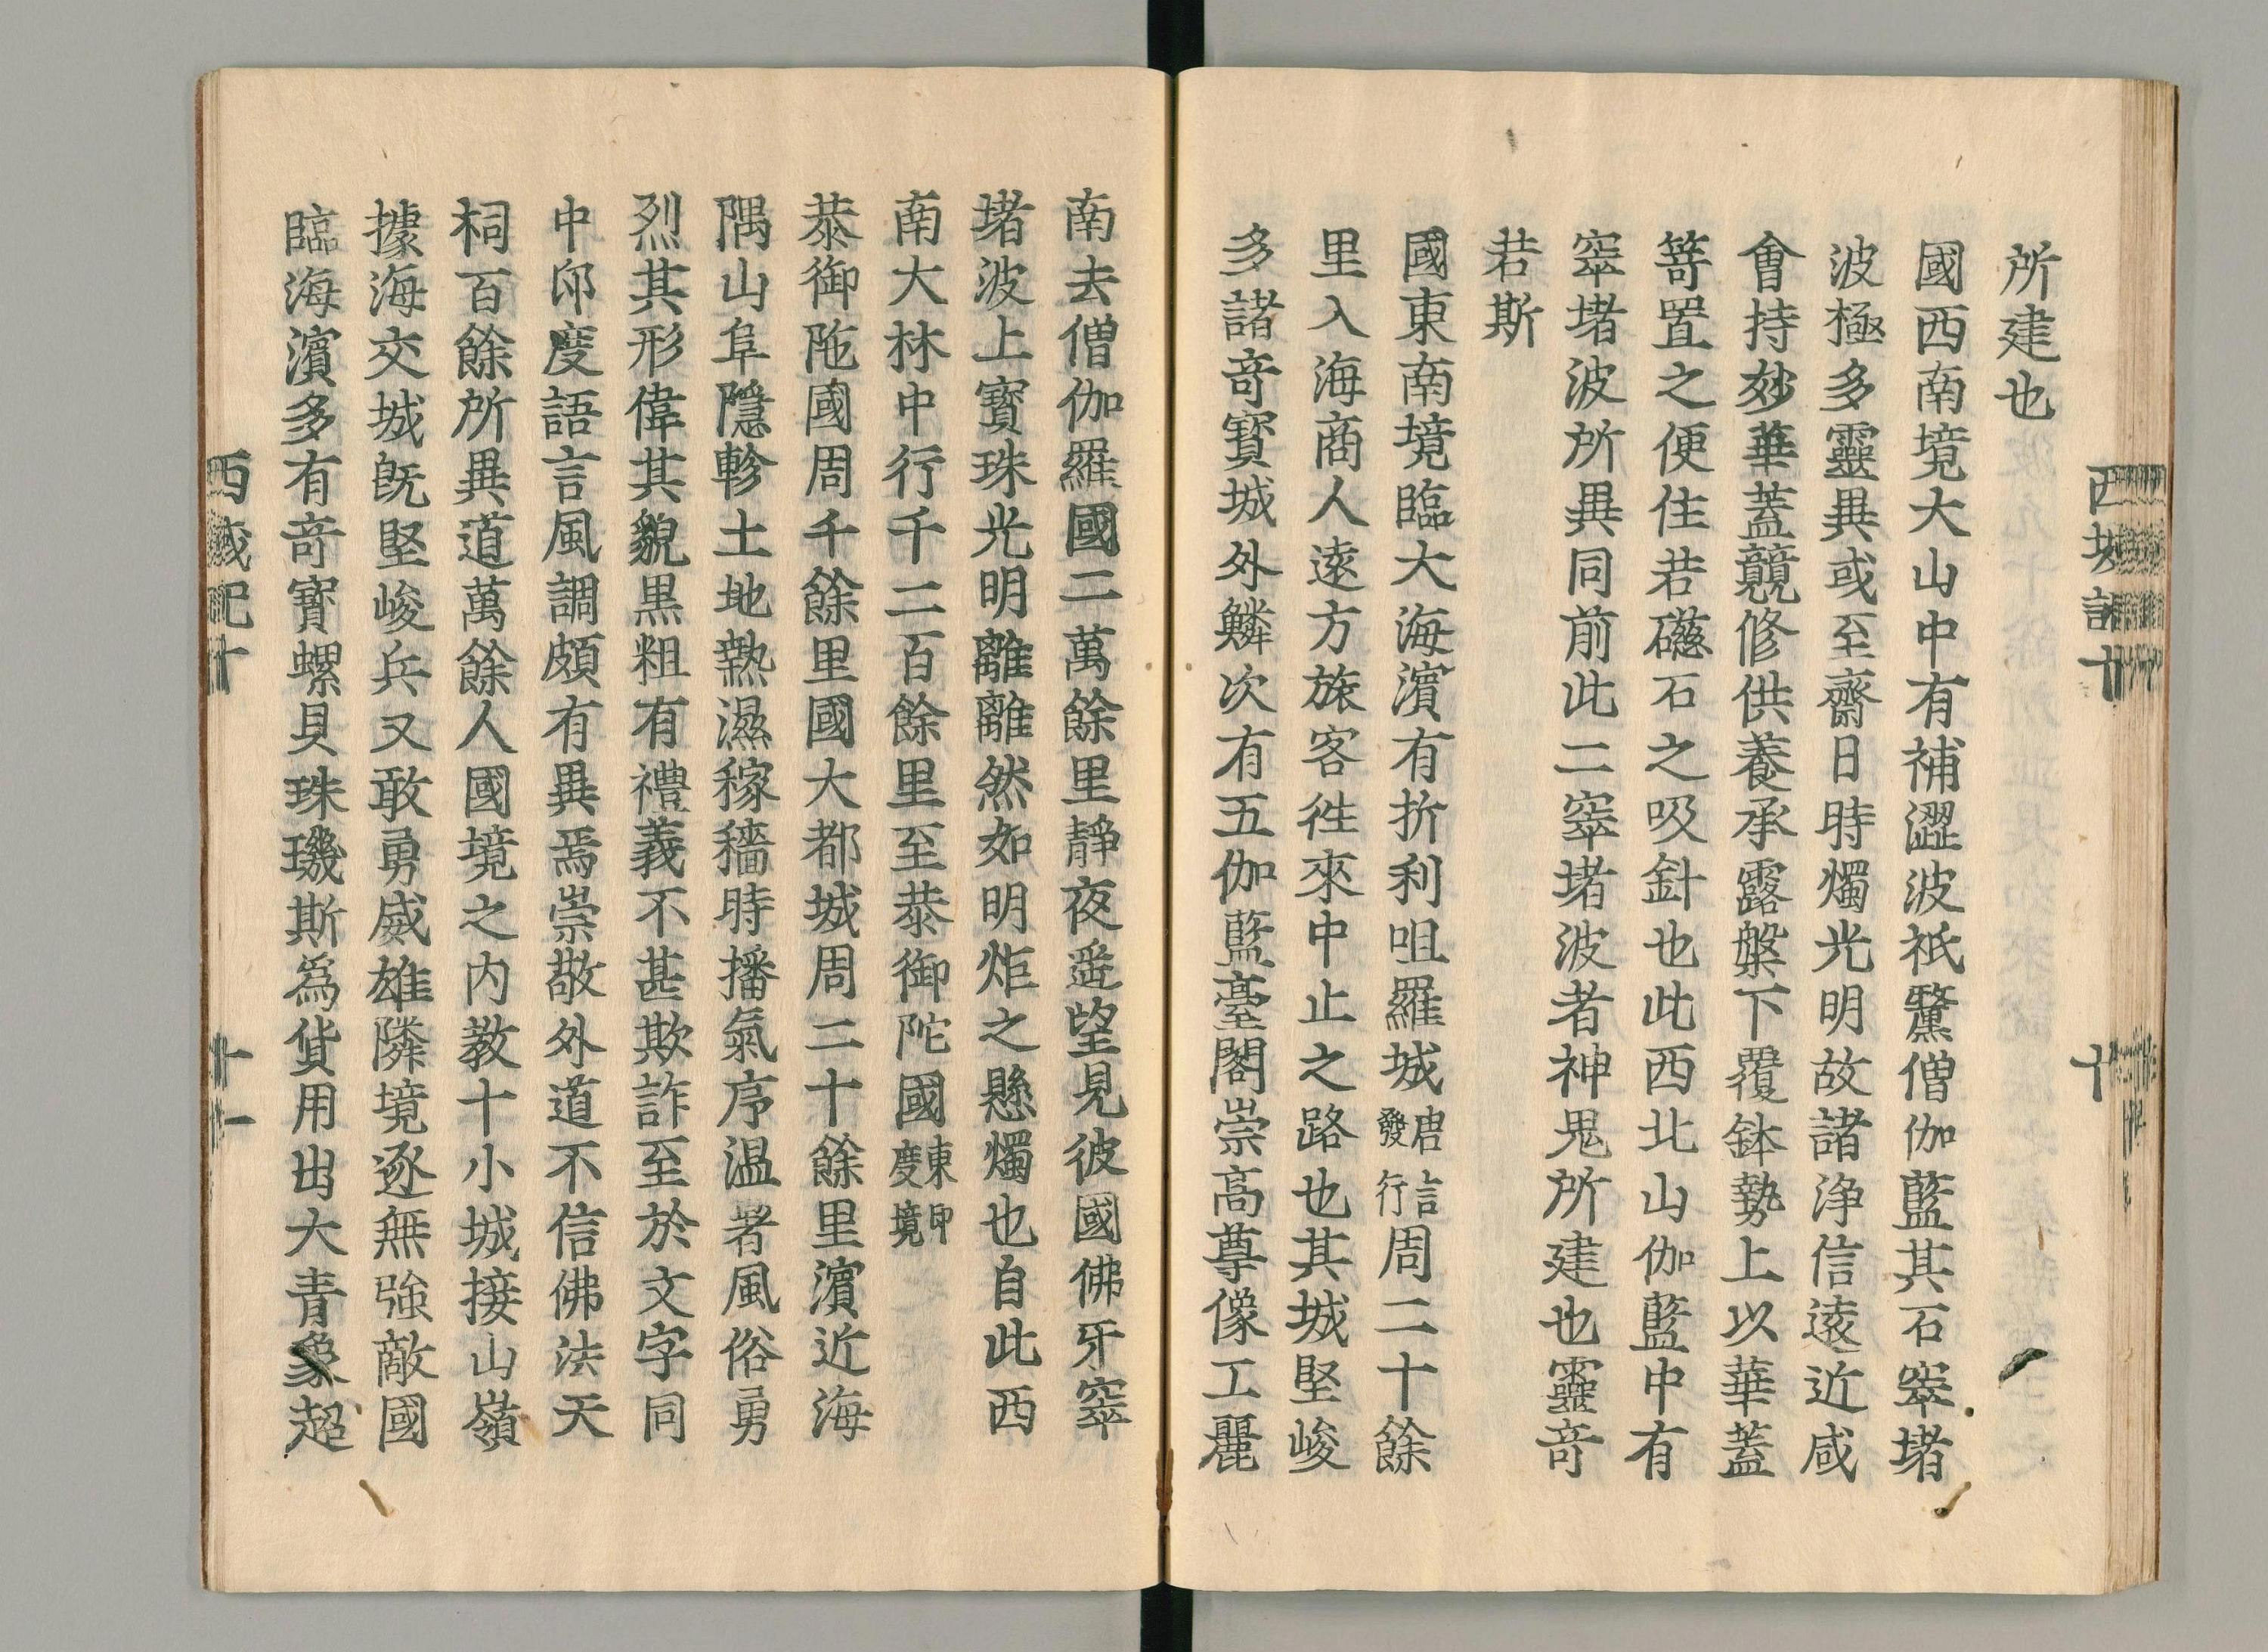 所建也
國西南境大山中有補澀波祇釐僧伽藍其石窣堵
波極多靈異或至齋日時燭光明故諸淨信遠近咸
會持妙華蓋競修供養承露槃下覆鉢勢上以華蓋
笴置之便住若礠石之吸針也此西北山伽藍中有
窣堵波所異同前此二窣堵波者神鬼所建也靈奇
若斯
國東南境臨大海濱有折利呾羅城唐言發行周二十餘
里入海商人遠方旅客往來中止之路也其城堅峻
多諸奇寶城外鱗次有五伽藍臺閣崇高尊像工麗
南去僧伽羅國二萬餘里靜夜遙望見彼國佛牙窣
堵波上寶珠光明離離然如明炬之懸燭也自此西
南大林中行千二百餘里至恭御陀國東印度境
恭御陁國周千餘里國大都城周二十餘里濱近海
隅山阜隱軫土地熱濕稼穡時播氣序溫暑風俗勇
烈其形偉其貌黑粗有禮義不甚欺詐至於文字同
中印度語言風調頗有異焉崇敬外道不信佛法天
祠百餘所異道萬餘人國境之內敎十小城接山嶺
據海交城旣堅峻兵又敢勇威雄隣境逐無強敵國
臨海濱多有奇寶螺貝珠璣斯為貨用出大青象超
西域記十 十一